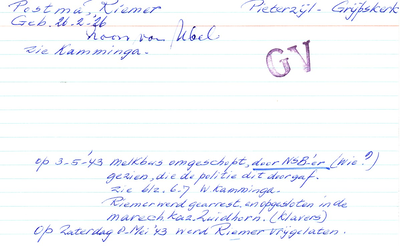 Postma, Riemer Pieterzijl - Grijpskerk
Geb. 26-2-'26
zoon van Ubel
zie Kamminga.
GV
Op 3-5-'43 melkbus omgeschopt, door NSB'er (wie?)
gezien, die de politie dit doorgaf.
Zie blz. 6-7 W Kamminga.
Riemer werd gearrest. en opgesloten in de
marech. kaz. Zuidhorn. (Klavers)
Op Zaterdag 8-Mei '43 werd Riemer vrijgelaten.